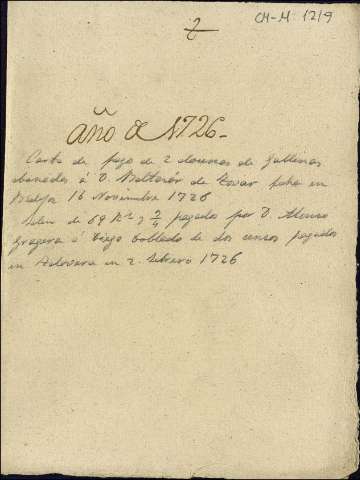 2
CM-M 12/9
Año de 1726-
Carta de pago de 2 docenas de gallinas
abonadas á D. Baltasár de Tovar fecha en
16 Noviembre 1726
Idem de 68 Rs y 2/4 pagados por D. Alonso
á Diego de dos censos pagados
en en 2. Febrero 1726